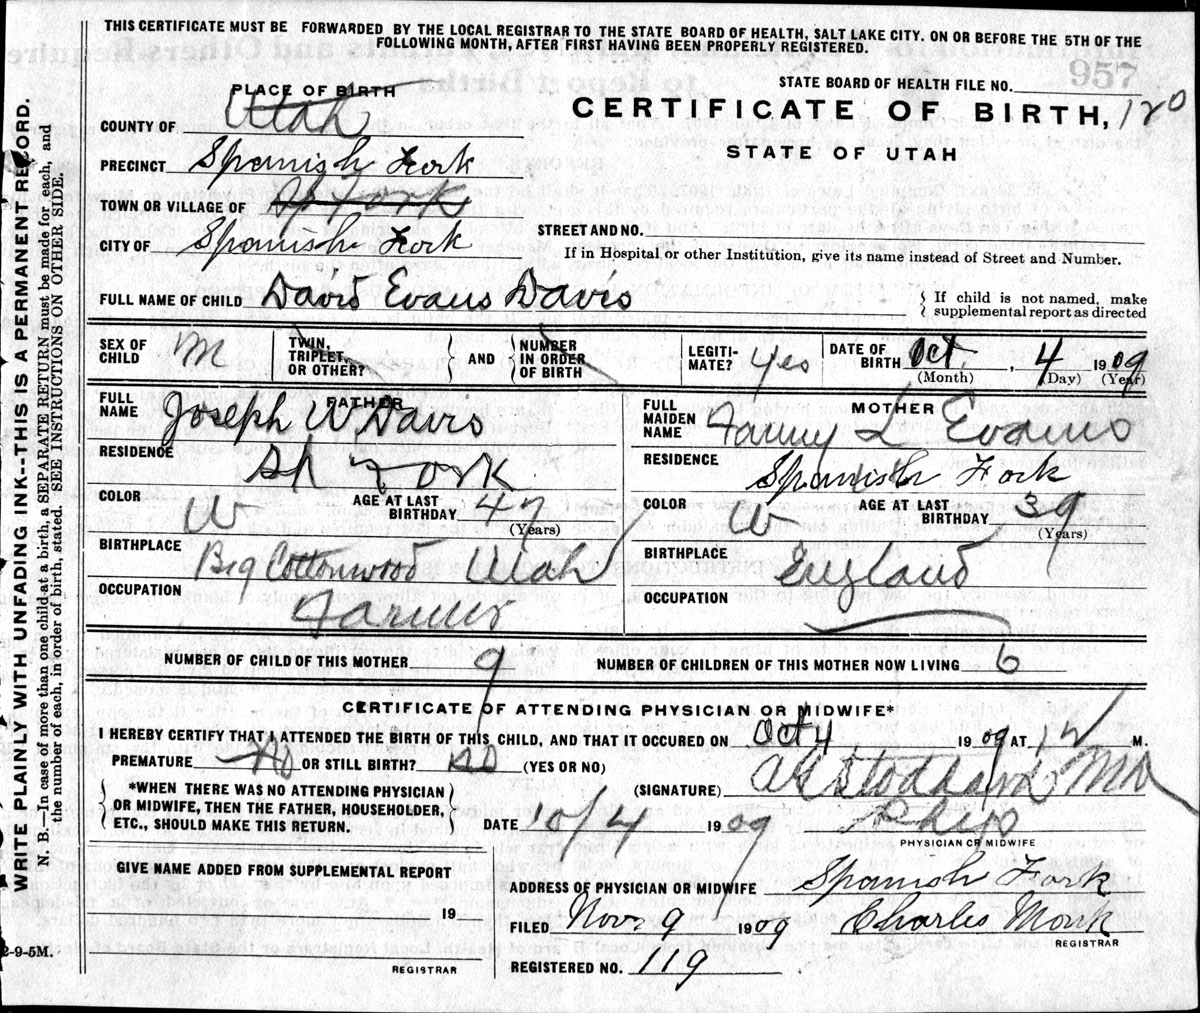 THIS CERTIFICATE MUST BE FORWARDED BY THE LOCAL REGISTRAR TO THE STATE BOARD OF HEALTH, SALT LAKE CITY. ON OR BEFORE THE 5TH OF THE
FOLLOWING MONTH, AFTER FIRST HAVING BEEN PROPERLY REGISTERED.
957
STATE BOARD OF HEALTH FILE NO.
CERTIFICATE OF BIRTH, 120
STATE OF UTAH
PLACE OF BIRTH
COUNTY OF Utah
PRECINCT Spanish Fork
TOWN OR VILLAGE OF Sp Fork
CITY OF Spanish Fork
STREET AND NO.
If in Hospital or other Institution, give its name instead of Street and Number.
FULL NAME OF CHILD David Evans Davis
If child is not named, make
supplemental report as directed
SEX OF CHILD M
TWIN, TRIPLET, OR OTHER?
AND
NUMBER IN ORDER OF BIRTH
LEGITIMATE? Yes
DATE OF BIRTH Oct. 4 1909
(Month) (Day) (Year)
FATHER
FULL NAME Joseph W Davis
RESIDENCE Sp Fork
COLOR W
AGE AT LAST BIRTHDAY
(Years)
BIRTHPLACE Big Cottonwood Utah
OCCUPATION Farmer
MOTHER
FULL MAIDEN NAME Fanny L Evans
RESIDENCE Spanish Fork
COLOR W
AGE AT LAST BIRTHDAY 39
(Years)
BIRTHPLACE England
OCCUPATION
NUMBER OF CHILD OF THIS MOTHER 9
NUMBER OF CHILDREN OF THIS MOTHER NOW LIVING 6
CERTIFICATE OF ATTENDING PHYSICIAN OR MIDWIFE*
I HEREBY CERTIFY THAT I ATTENDED THE BIRTH OF THIS CHILD, AND THAT IT OCCURED ON Oct 4 1909 AT 12 M.
PREMATURE No OR STILL BIRTH? no (YES OR NO)
*WHEN THERE WAS NO ATTENDING PHYSICIAN
OR MIDWIFE, THEN THE FATHER, HOUSEHOLDER,
ETC., SHOULD MAKE THIS RETURN.
(SIGNATURE) Stoddard MD
DATE 10/4 1909 Phys
PHYSICIAN OR MIDWIFE
GIVE NAME ADDED FROM SUPPLEMENTAL REPORT
19
REGISTRAR
ADDRESS OF PHYSICIAN OR MIDWIFE Spanish Fork
FILED Nov 9 1909 Charles Monk
REGISTRAR
REGISTERED NO. 119
2-9-5M.
WRITE PLAINLY WITH UNFADING INK--THIS IS A PERMANENT RECORD.
N. B.—In case of more than one child at a birth, a SEPARATE RETURN must be made for each, and
the number of each, in order of birth, stated. SEE INSTRUCTIONS ON OTHER SIDE.